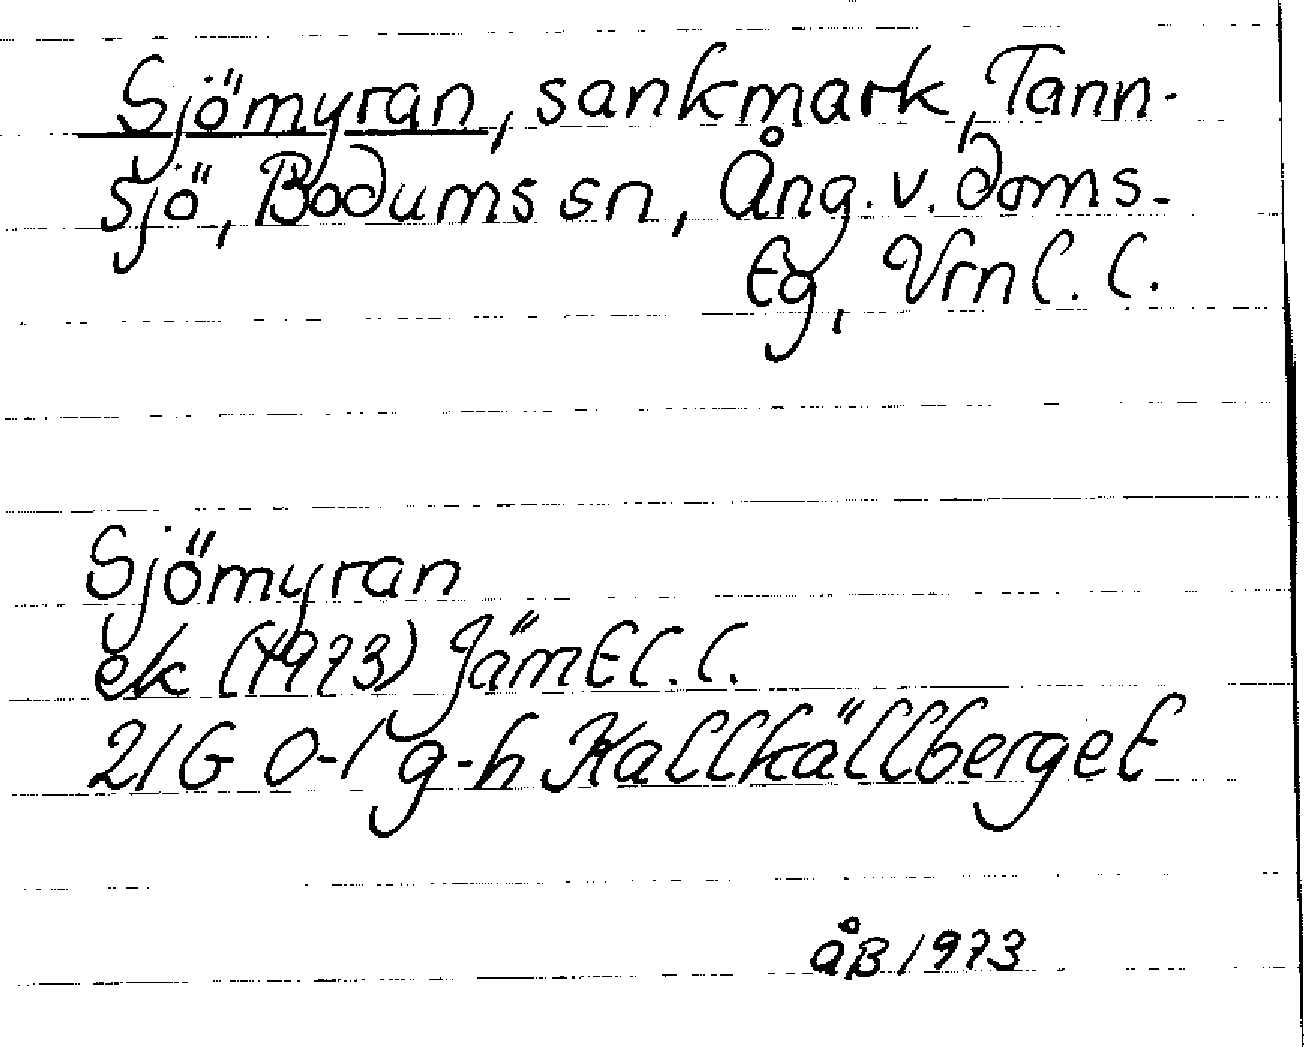 Sjömyran, sankmark, Tann-
sjö, Bodums sn, Ång. v. doms-
tg, Vrnl. l.
Sjömyran
ek (1973) Jämtl. l.
21G 0-1 g-h Kallkällberget
åB 1973